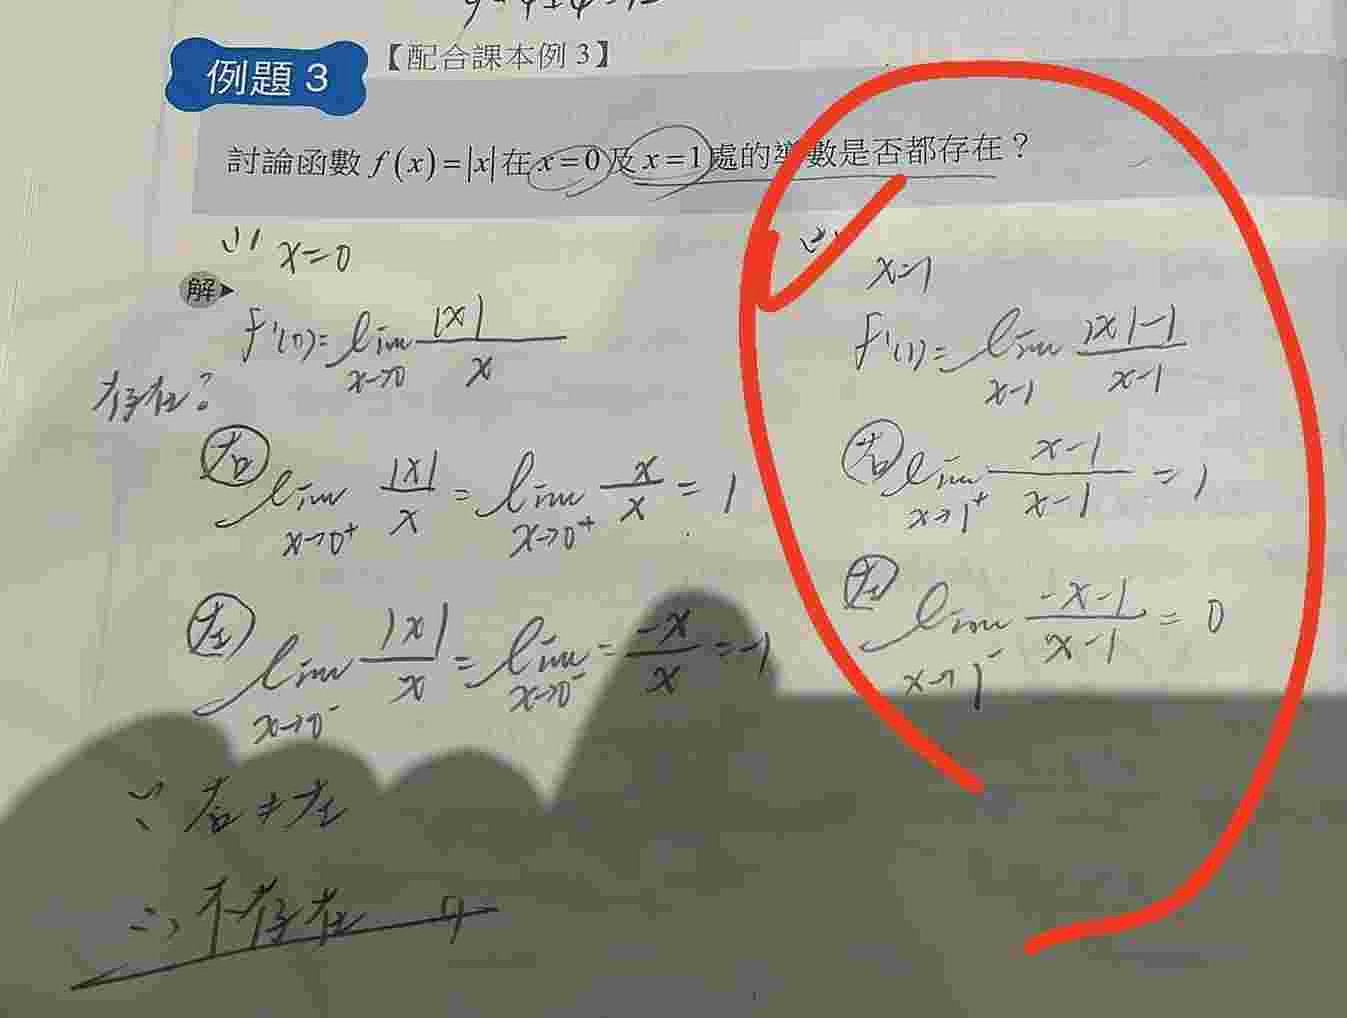 例題 3 【配合課本例 3】
討論函數 f(x)=|x| 在 x=0 及 x=1 處的導數是否都存在？
(1) x=0
解
f'(0)= lim x→0 |x| / x
存在？
右 lim x→0⁺ |x| / x = lim x→0⁺ x / x = 1
左 lim x→0⁻ |x| / x = lim x→0⁻ = -x / x = -1
∵ 右≠左
∴ 不存在
(2)
x=1
f'(1)= lim x→1 |x|-1 / x-1
右 lim x→1⁺ x-1 / x-1 = 1
左 lim x→1⁻ -x-1 / x-1 = 0